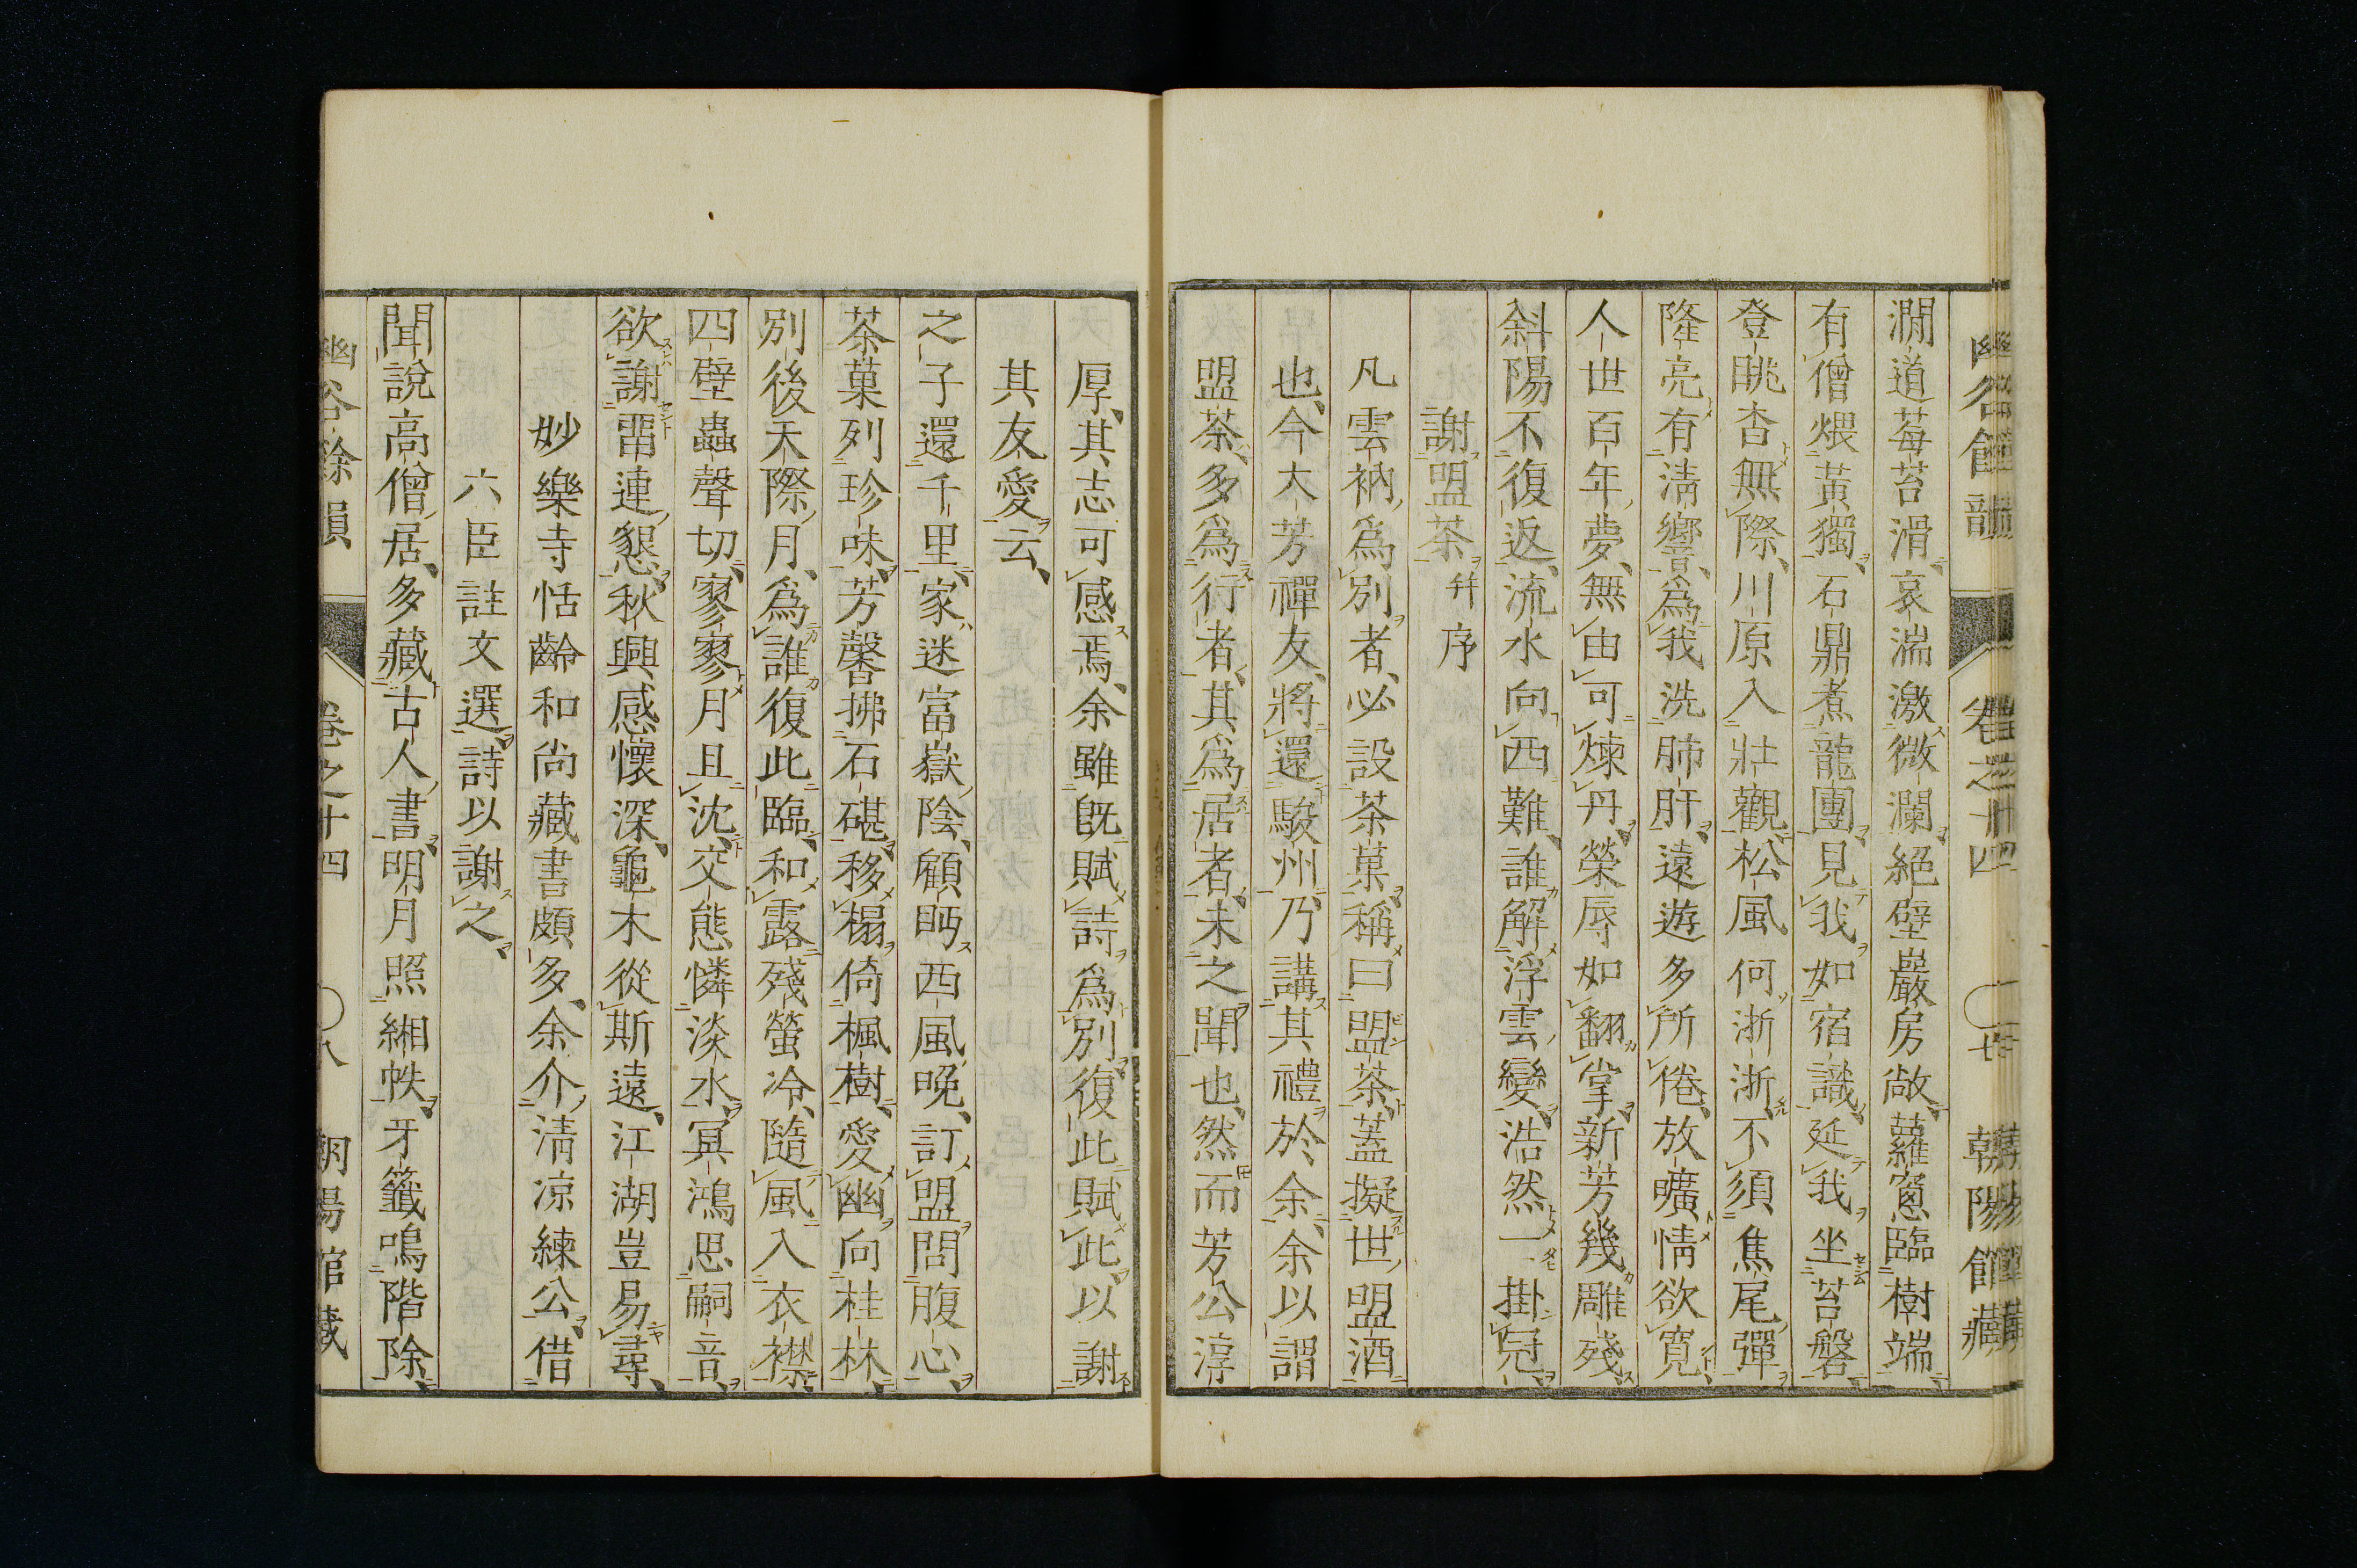 澗道莓苔滑哀湍激微瀾絕壁巖房敞蘿窻臨樹端
有僧煨黃獨石鼎煮龍團見我如宿識延我坐苔磐
登眺杳無際川原入壯觀松風何浙浙不須焦尾彈
隆亮有淸響爲我洗肺肝遠遊多所倦放曠情欲寬
人世百年夢無由可煉丹榮辱如翻掌新芳幾雕殘
斜陽不復返流水向西難誰解浮雲變浩然一掛冠
謝盟茶幷序
凡雲衲爲別者必設茶菓稱曰盟茶蓋擬世盟酒
也今大芳禪友將還駿州乃講其禮於余余以謂
盟茶多爲行者其爲居者未之聞也然而芳公淳
厚其志可感焉余雖既賦詩爲別復此賦此以謝
其友愛云
之子還千里家迷富嶽陰顧眄西風晚訂盟問腹心
茶菓列珍味芳馨拂石碪移榻倚楓樹愛幽向桂林
別後天際月爲誰復此臨和露殘螢冷隨風入衣襟
四壁蟲聲切寥寥月且沈交態憐淡水冥鴻思嗣音
欲謝畱連懇秋興感懷深龜木從斯遠江湖豈易尋
妙樂寺恬齡和尚藏書頗多余介淸凉練公借
六臣註文選詩以謝之
聞說高僧居多藏古人書明月照緗帙牙籤鳴階除
幽谷餘韻 卷之十四 〇八 朝陽館藏